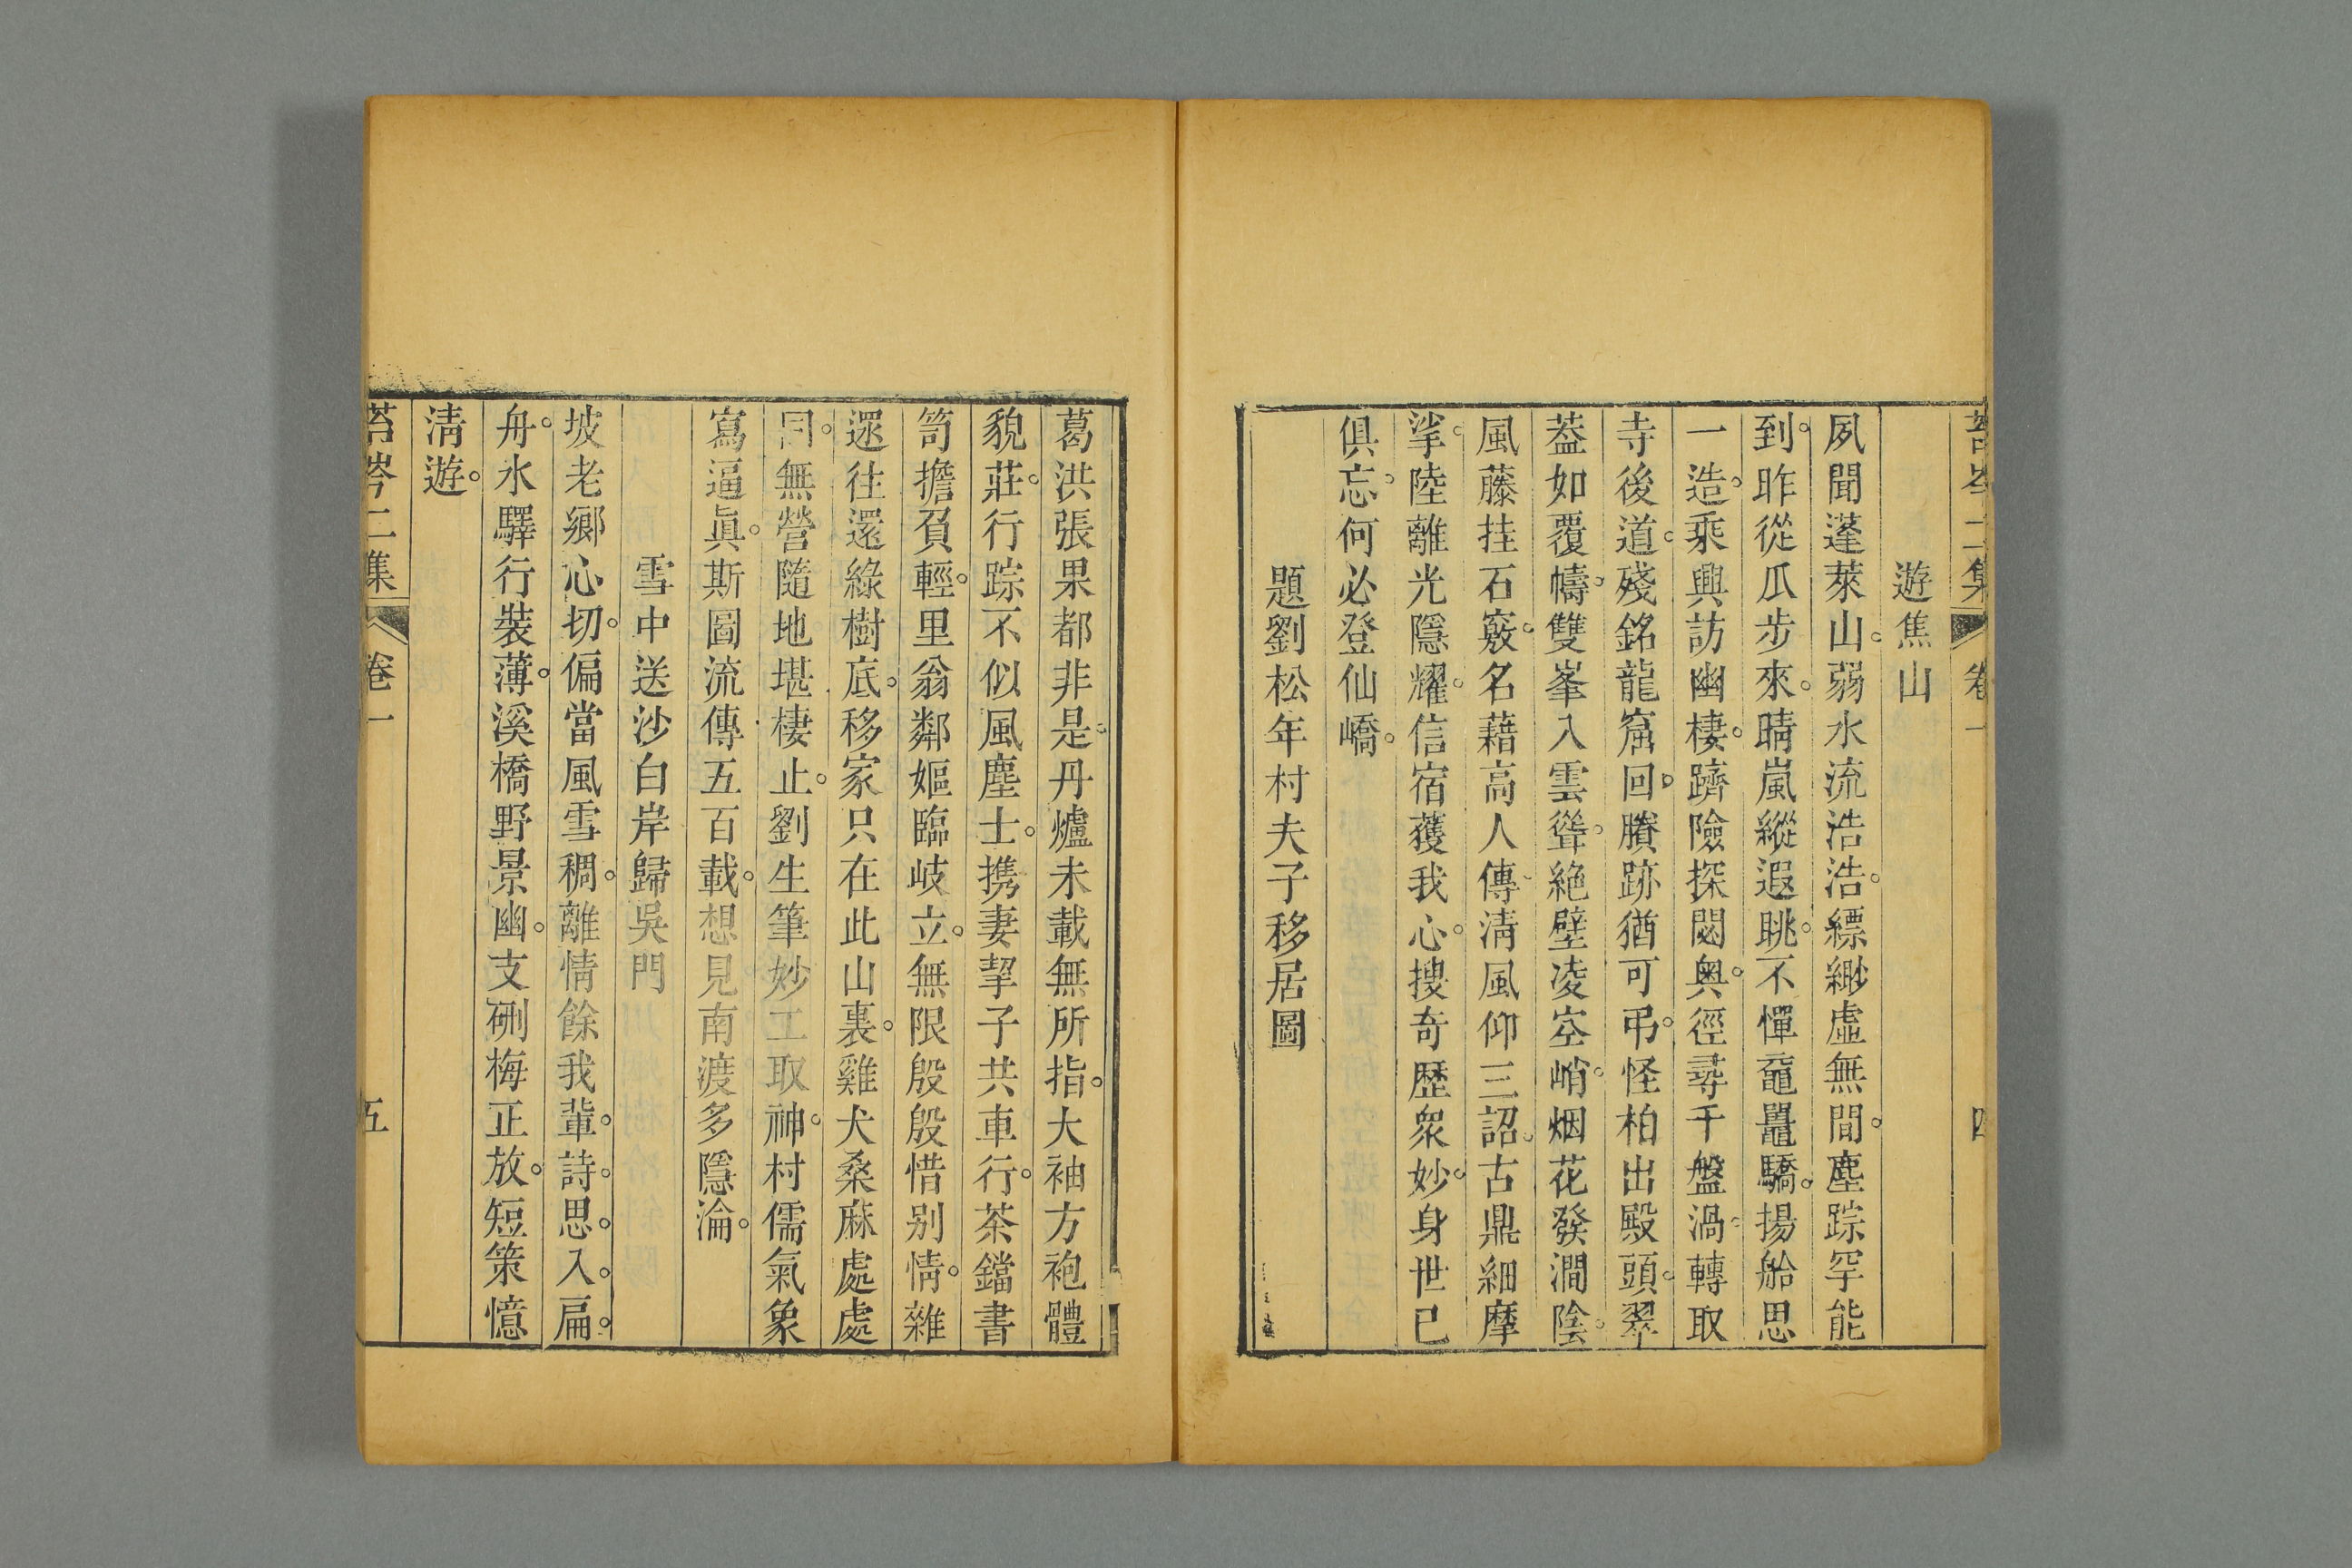 苔岑二集 卷一 四
遊焦山
夙聞蓬萊山。弱水流浩浩。縹緲虛無間。塵踪罕能
到。昨從瓜步來。晴嵐縱遐眺。不憚黿鼉驕。揚舲思
一造。乘興訪幽棲。躋險探閟奧。徑尋千盤渦。轉取
寺後道。殘銘龍窟回。賸跡猶可弔。怪柏出殿頭。翠
葢如覆幬。雙峯入雲聳。絕壁凌空峭。烟花發澗陰。
風藤挂石竅。名藉高人傳。清風仰三詔。古鼎細摩
挲。陸離光隱耀。信宿獲我心。搜奇歷眾妙。身世已
俱忘。何必登仙嶠。
題劉松年村夫子移居圖
葛洪張果都非是。丹爐未載無所指。大袖方袍體
貌莊。行踪不似風塵士。携妻挈子共車行。茶鐺書
笥擔負輕。里翁鄰嫗臨歧立。無限殷殷惜别情。雜
遝往還綠樹底。移家只在此山裏。雞犬桑麻處處
同。無營隨地堪棲止。劉生筆妙工取神。村儒氣象
寫逼眞。斯圖流傳五百載。想見南渡多隱淪。
雪中送沙白岸歸吳門
坡老鄉心切。偏當風雪稠。離情餘我輩。詩。思。入。扁。
舟。水驛行裝薄。溪橋野景幽。支硎梅正放。短策憶
清遊。
苔岑二集 卷一 五